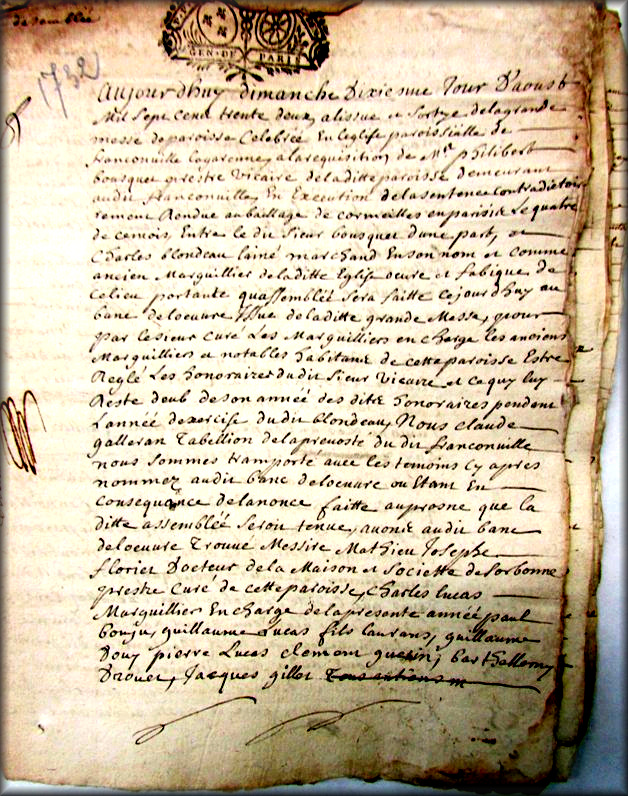 de semblée
GEN·DE PARIS
1732
Aujourdhuy dimanche Dixiesme Jour Daoust
Mil Sept Cent trente deux, alissue et Sortye delagrande
messe deparoisse Celebrée En leglise paroissialle de
franconville Lagarenne, alarequisition de Mr. Philibert
bousquet prestre Vicaire deladitte paroisse demeurant
audit franconville, En Execution delasentence contradictoi-
rement Rendue aubailliage de cormeilles en parisis Le quatre
de cemois, Entre le dit Sieur bousquet dune part, et
Charles blondeau lainé marchand En son nom et comme
ancien Marguillier deladitte Eglise oeuvre et fabique de
Celieu portante quassemblée Sera faitte cejourdhuy au
banc deloeuvre, Issue deladitte grande Messe, pour
par lesieur curé Les Marguilliers en charge les anciens
Marguilliers et notables habitans de cette paroisse Estre
Reglé Les honoraires dudit Sieur Vicaire, et cequy luy
Reste deub deson année des dits honoraires pendent
Lannée dexercise dudit blondeau, Nous claude
galleran Tabellion delaprevosté dudit franconville
nous Sommes transporté avec les temoins Cy apres
nommez audit banc deloeuvre ou Etant En
consequance delanonce faitte auprosne que la
ditte assemblée Seroit tenue, avons audit banc
deloeuvre Trouvé Messire Mathieu Josephe
floriet Docteur de la Maison et Societte de Sorbonne
prestre Curé de cetteparoisse, Charles Lucas
Marguillier En charge delapresente année, paul
bonju, guillaume Lucas fils Laurans, guillaume
Douy pierre Lucas clement guerin, barthellemy
Drouet, Jacques gillet Tous antiens m